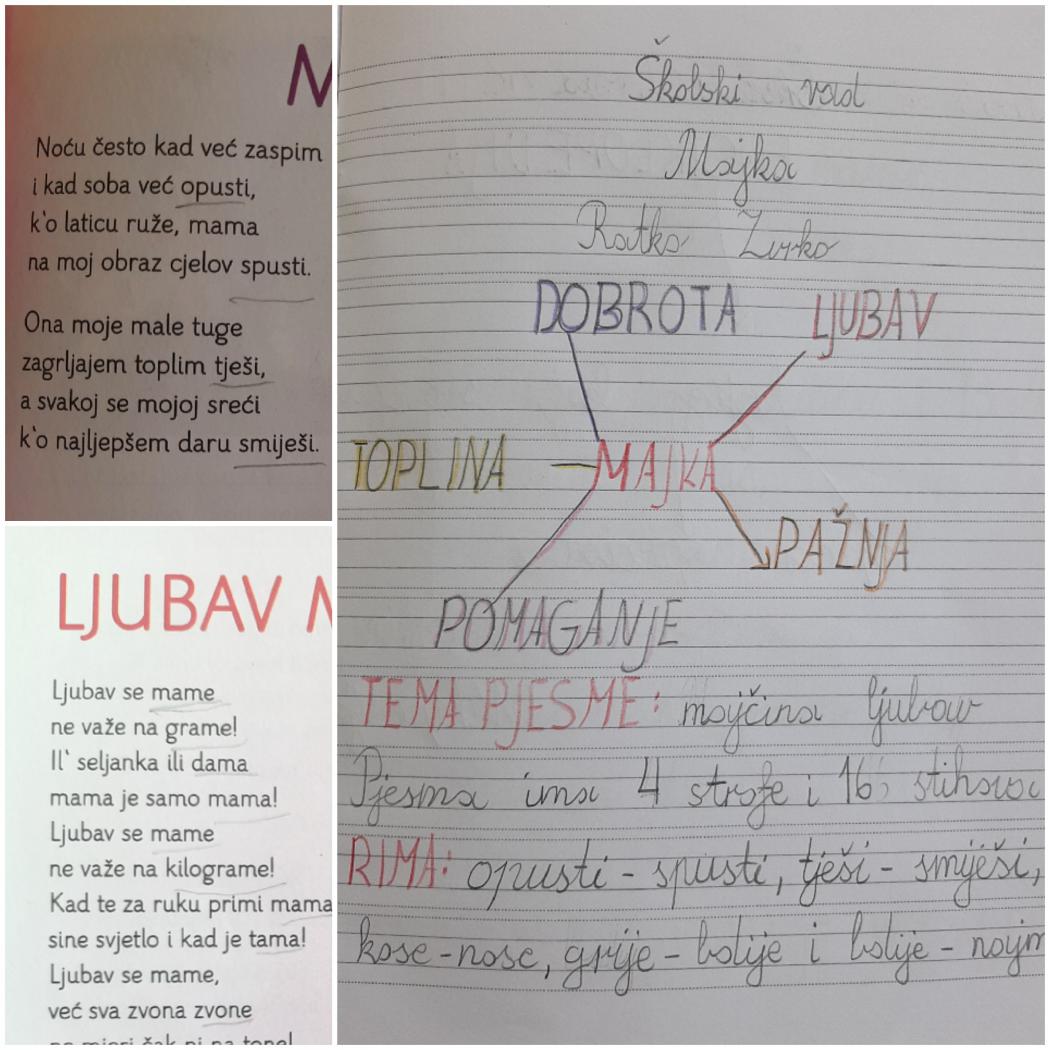 M
Noću često kad već zaspim
i kad soba već opusti,
k'o laticu ruže, mama
na moj obraz cjelov spusti.
Ona moje male tuge
zagrljajem toplim tješi,
a svakoj se mojoj sreći
k'o najljepšem daru smiješi.
LJUBAV
Ljubav se mame
ne važe na grame!
Il' seljanka ili dama
mama je samo mama!
Ljubav se mame
ne važe na kilograme!
Kad te za ruku primi mama
sine svjetlo i kad je tama!
Ljubav se mame,
već sva zvona zvone
Školski rad
Majka
Ratko Zvrko
DOBROTA
LJUBAV
TOPLINA
MAJKA
PAŽNJA
POMAGANJE
TEMA PJESME: majčina ljubav
Pjesma ima 4 strofe i 16 stihova
RIMA: opusti - spusti, tješi - smiješi,
kose - nose, grije - bdije i bdije - najm